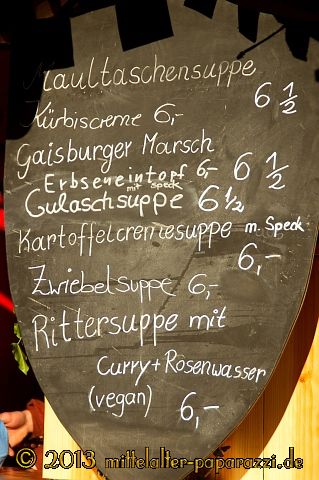 Maultaschensuppe
6 1/2
Kürbiscreme 6,-
Gaisburger Marsch
6 1/2
Erbseneintopf 6,-
mit speck
Gulaschsuppe 6 1/2
Kartoffelcremesuppe m. Speck
6,-
Zwiebelsuppe 6,-
Rittersuppe mit
Curry + Rosenwasser
(vegan) 6,-
© 2013 mittelalter-paparazzi.de ©